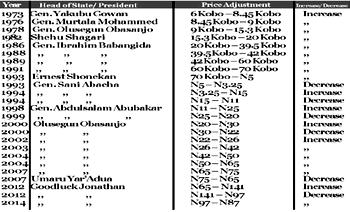 Year Head of State/ President Price Adjustment Increase/Decrease
1973 Gen. Yakubu Gowan 6 Kobo – 8.45 Kobo Increase
1976 Gen. Murtala Mohammed 8.45Kobo – 9 Kobo ,,
1978 Gen. Olusegun Obasanjo 9Kobo – 15.3 Kobo ,,
1982 Shehu Shagari 15.3 Kobo – 20 Kobo ,,
1986 Gen. Ibrahim Babangida 20 Kobo – 39.5 Kobo ,,
1988 ,, ,, 39.5 Kobo – 42 Kobo ,,
1989 ,, ,, 42 Kobo – 60 Kobo ,,
1991 ,, ,, 60 Kobo – 70 Kobo ,,
1993 Ernest Shonekan 70 Kobo – N5 ,,
1993 Gen. Sani Abacha N5 – N3.25 Decrease
1994 ,, ,, N3.25 – N15 Increase
1994 ,, ,, N15 – N11 Decrease
1998 Gen. Abdulsalam Abubakar N11 – N25 Increase
1999 ,, ,, N25 – N20 Decrease
2000 Olusegun Obasanjo N20 – N30 Increase
2000 ,, ,, N30 – N22 Decrease
2002 ,, ,, N22 – N26 Increase
2003 ,, ,, N26 – N42 ,,
2004 ,, ,, N42 – N50 ,,
2004 ,, ,, N50 – N65 ,,
2007 ,, ,, N65 – N75 ,,
2007 Umaru Yar'Adua N75 – N65 Decrease
2012 Goodluck Jonathan N65 – N141 Increase
2012 ,, ,, N141 – N97 Decrease
2014 ,, ,, N97 – N87 ,,